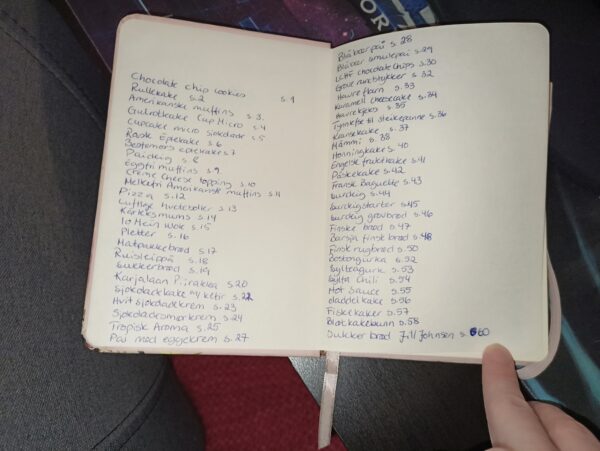 OR
Chocolate chip cookies s.1
Rullekake s.2
Amerikanske muffins s.3
Gulrotkake Cup Micro s.4
Cupcake micro sjokolade s.5
Rask Eplekake s.6
Bestemors eplekake s.7
Pannkaka s.8
Eggfri muffins s.9
Creme Cheese topping s.10
Melkefri Amerikanske muffins s.11
Pizza s.12
Luftige hveteboller s.13
Kärleksmums s.14
lo Mein Wok s.15
Pletter s.16
Matpakkebrød s.17
Ruisleipä s.18
Sukkerbrød s.19
Karjalaan Piirakka s.20
Sjokoladekake m/kefir s.22
Hvit sjokoladekrem s.23
Sjokoladesmørkrem s.24
Tropisk Aroma s.25
Pai med eggekrem s.27
Blåbærpai s.28
Blåbær smulepai s.29
LCHF chocolate chips s.30
Grove rundstykker s.32
Havreflarn s.33
Karamell cheesecake s.34
Havrekjeks s.35
Tynnlefse til steikepanne s.36
Kransekake s.37
Mämmi s.38
Honningkaker s.40
Engelsk fruktkake s.41
Påskekake s.42
Fransk Baguette s.43
Surdeig s.44
Surdeigstarter s.45
Surdeig grovbrød s.46
Finske brød s.47
Barsk finsk brød s.48
Finsk rugbrød s.50
Bostongurka s.52
Sylteagurk s.53
Sylta Chili s.54
Hot Sauce s.55
daddelkake s.56
Fiskekaker s.57
Bløtkakebunn s.58
Sukkerbrød Jill Johnsen s.60